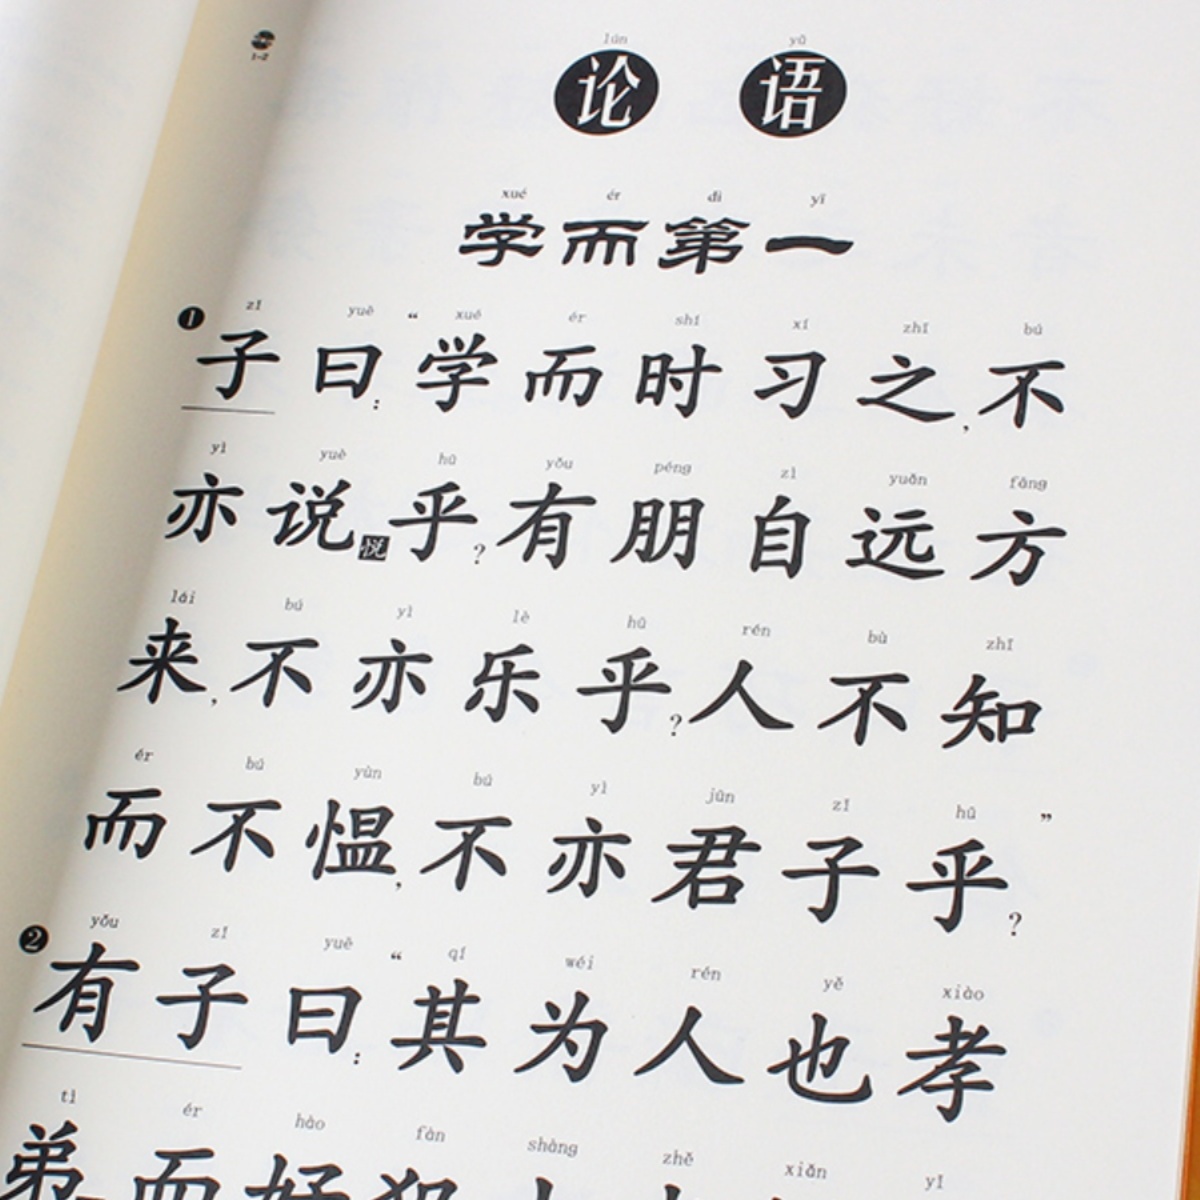 lún yǔ
论语
xué ér dì yī
学而第一
zǐ yuē xué ér shí xí zhī bú
❶子曰:“学而时习之,不
yì yuè hū yǒu péng zì yuǎn fāng
亦说悦乎?有朋自远方
lái bú yì lè hū rén bù zhī
来,不亦乐乎?人不知
ér bú yùn bú yì jūn zǐ hū
而不愠,不亦君子乎?”
yǒu zǐ yuē qí wéi rén yě xiào
❷有子曰:“其为人也孝
tì ér hào fàn shàng zhě xiǎn yǐ
弟而好犯